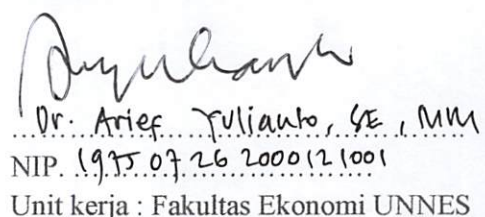 Dr. Arief Yulianto, SE, MM
NIP. 19750726 2000121001
Unit kerja : Fakultas Ekonomi UNNES